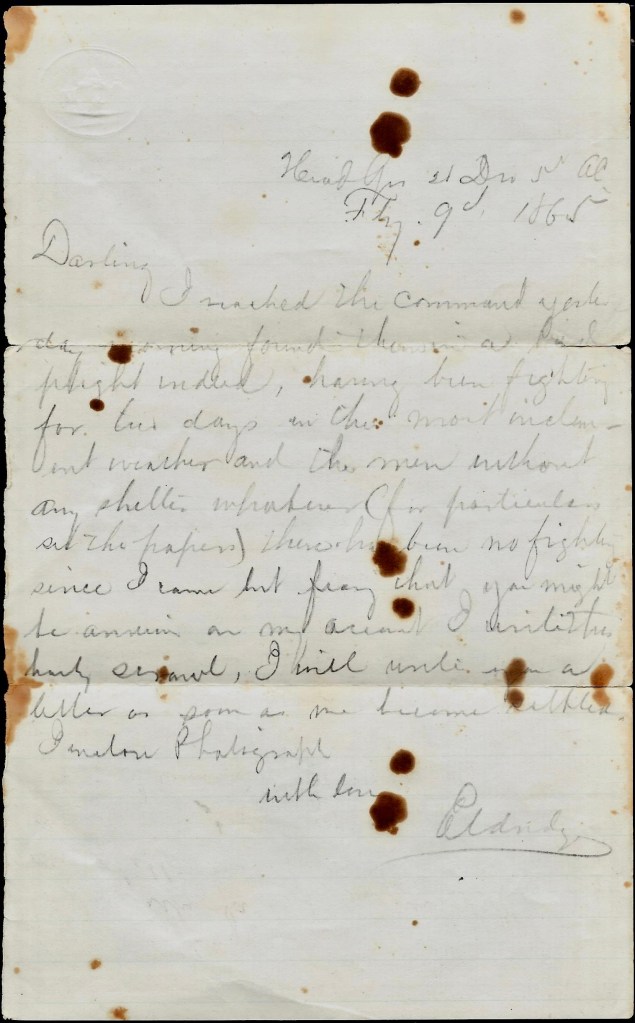 Head Qrs 2d Div 5" AC
Feby. 9th, 1865
Darling
I reached the command yester
day morning found them in a bad
plight indeed, having been fighting
for two days in the most inclem-
ent weather and the men without
any shelter whatever (for particulars
see the papers) there has been no fighting
since I came but fearing that you might
be anxious on my account I write this
hasty scrawl, I will write you a
letter as soon as we become settled.
I enclose Photograph
with love
Eldridge